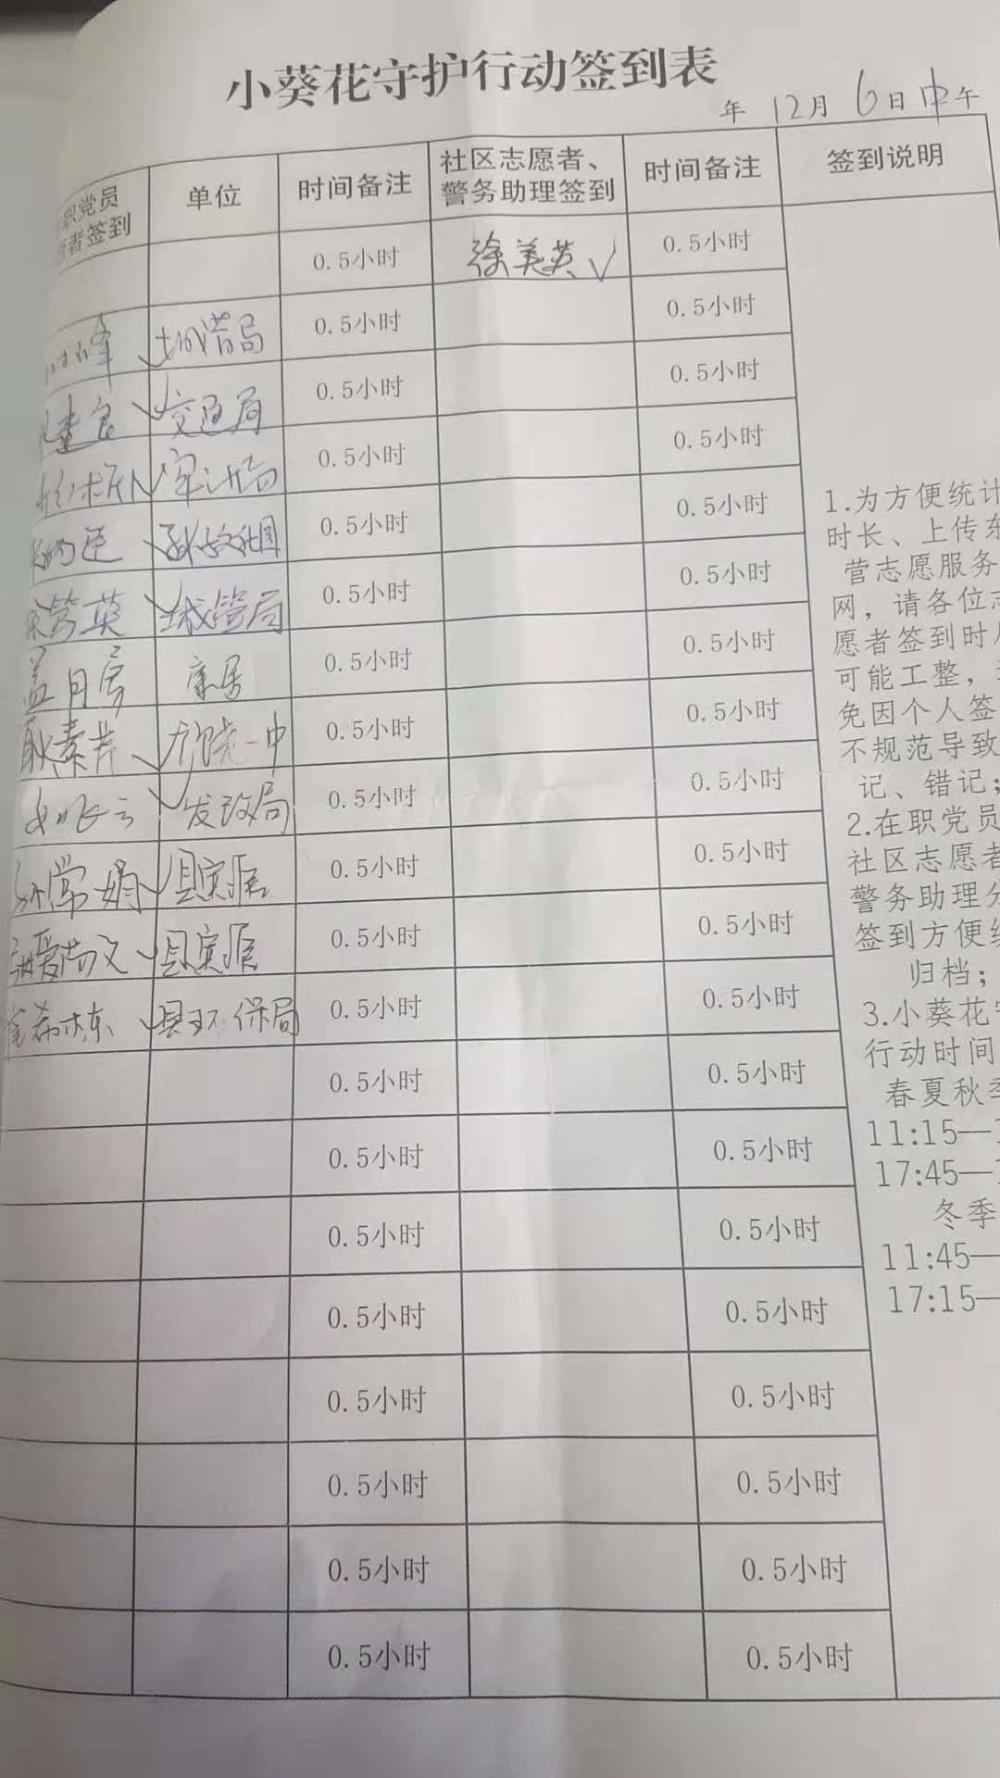 小葵花守护行动签到表
年 12月 6日中午
职党员 单位 时间备注 社区志愿者、 时间备注 签到说明
者签到 警务助理签到
0.5小时 徐美英√ 0.5小时
峰 城管局 0.5小时 0.5小时
建良 交通局 0.5小时 0.5小时
审计局 0.5小时 0.5小时
0.5小时 0.5小时
英 城管局 0.5小时 0.5小时
盖月房 康居 0.5小时 0.5小时
耿素芹 一中 0.5小时 0.5小时
飞云 发改局 0.5小时 0.5小时
孙常娟 县宾馆 0.5小时 0.5小时
爱文 县宾馆 0.5小时 0.5小时
栋 县环保局 0.5小时 0.5小时
0.5小时 0.5小时
0.5小时 0.5小时
0.5小时 0.5小时
0.5小时 0.5小时
0.5小时 0.5小时
0.5小时 0.5小时
0.5小时 0.5小时
0.5小时 0.5小时
1.为方便统计
时长、上传东
营志愿服务
网，请各位志
愿者签到时
可能工整，
免因个人签
不规范导致
记、错记；
2.在职党员
社区志愿者
警务助理分
签到方便统
归档；
3.小葵花守
行动时间
春夏秋季
11:15—
17:45—
冬季
11:45—
17:15—